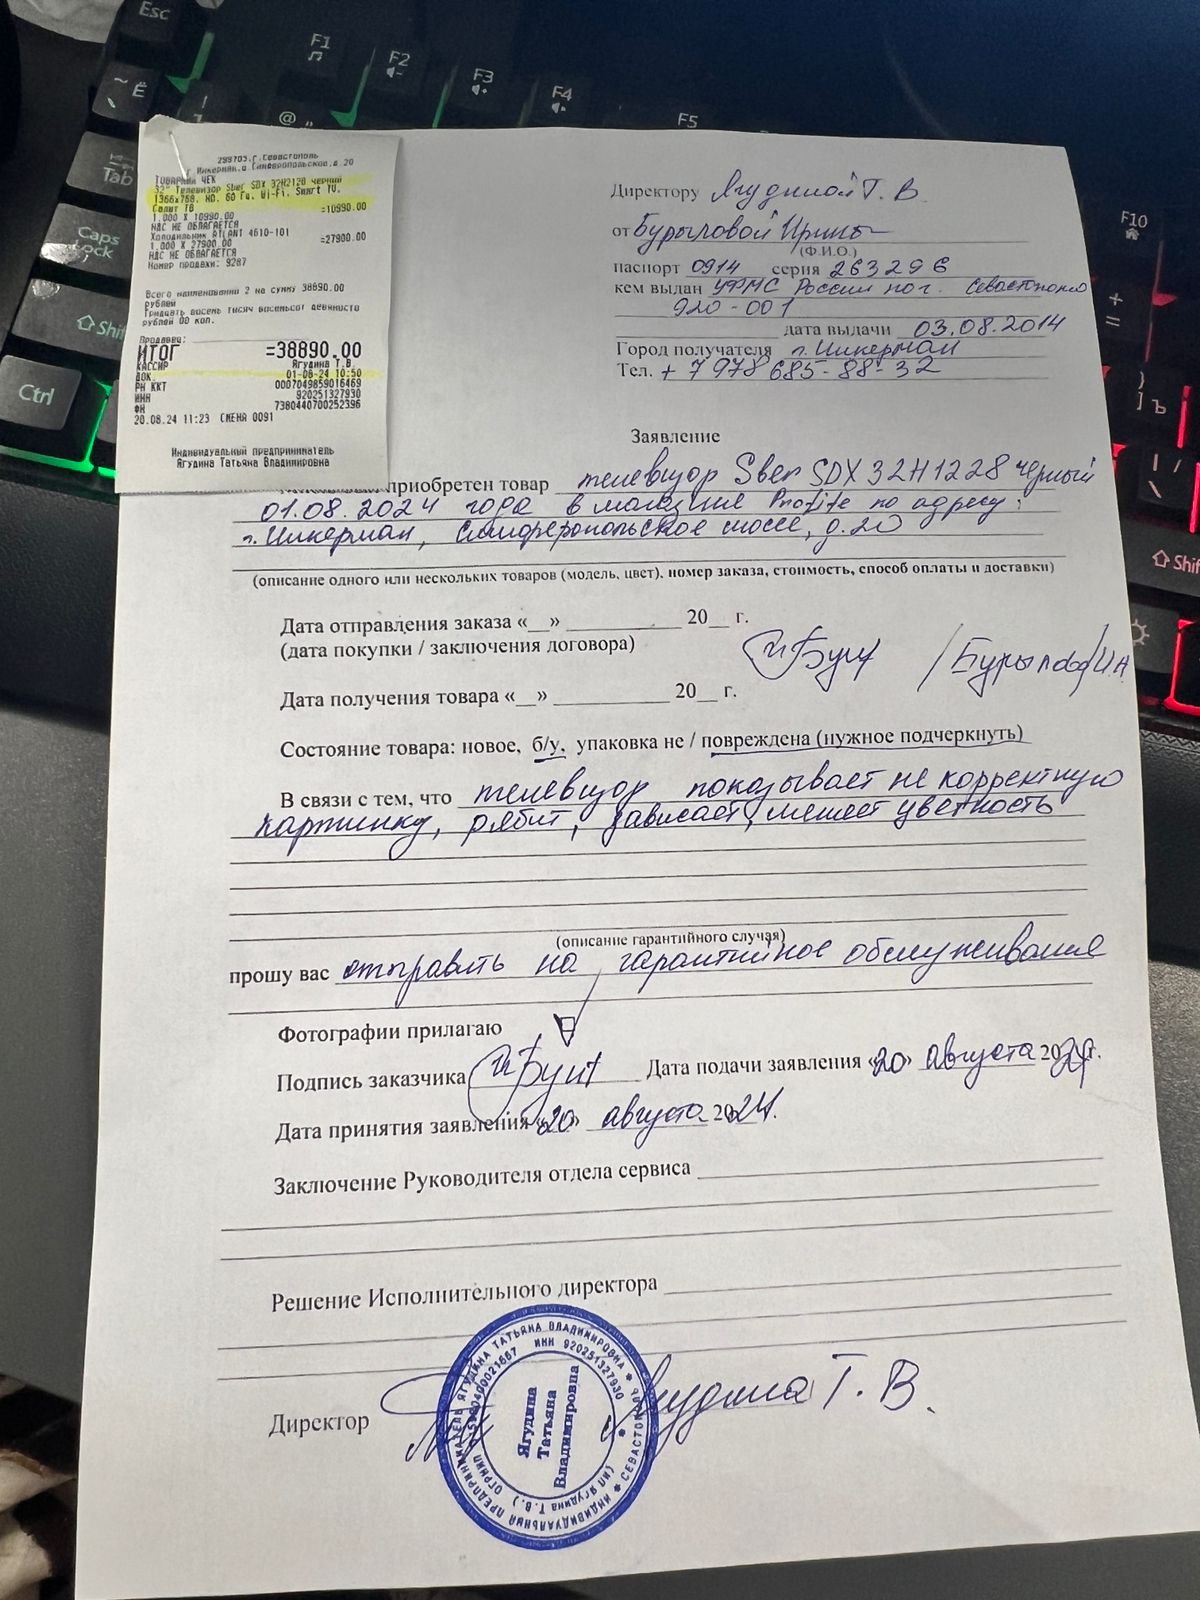 Esc
F1
F2
F3
F4
F5
F10
Ё
Tab
Caps Lock
Shift
Ctrl
299703, г. Севастополь
Инкерман, ш. Симферопольское, д. 20
ТОВАРНЫЙ ЧЕК
32" Телевизор Sber SDX 32H2128 черный
1366x768, HD, 60 Гц, Wi-Fi, Smart TV,
Салют ТВ
1.000 X 10990.00 =10990.00
НДС НЕ ОБЛАГАЕТСЯ
Холодильник ATLANT 4610-101
1.000 X 27900.00 =27900.00
НДС НЕ ОБЛАГАЕТСЯ
Номер продажи: 9287
Всего наименований 2 на сумму 38890.00
рублей
Тридцать восемь тысяч восемьсот девяносто
рублей 00 коп.
Продавец:
ИТОГ =38890.00
КАССИР Ягудина Т.В.
ДОК. 01-08-24 10:50
РН ККТ 0007049859016469
ИНН 920251327930
ФН 7380440700252396
20.08.24 11:23 СМЕНА 0091
Индивидуальный предприниматель
Ягудина Татьяна Владимировна
Директору Ягудиной Т. В
от Бурыловой Ирины
(Ф.И.О.)
паспорт 0914 серия 263296
кем выдан УФМС России по г. Севастополю
920-001
дата выдачи 03.08.2014
Город получателя г. Инкерман
Тел. +7978 685-88-32
Заявление
приобретен товар телевизор Sber SDX 32H1228 черный
01.08.2024 года в магазине Profite по адресу:
г. Инкерман, Симферопольское шоссе, д. 20
(описание одного или нескольких товаров (модель, цвет), номер заказа, стоимость, способ оплаты и доставки)
Дата отправления заказа «__» __________ 20__ г.
(дата покупки / заключения договора)
/Бурылова/И.А
Дата получения товара «__» __________ 20__ г.
Состояние товара: новое, б/у, упаковка не / повреждена (нужное подчеркнуть)
В связи с тем, что телевизор показывает не корректную
картинку, рябит, зависает, меняет цветность
(описание гарантийного случая)
прошу вас отправить на гарантийное обслуживание
Фотографии прилагаю
Подпись заказчика Дата подачи заявления «20» августа 2024г.
Дата принятия заявления «20» августа 2024.
Заключение Руководителя отдела сервиса
Решение Исполнительного директора
Директор Ягудина Т. В.
ИНДИВИДУАЛЬНЫЙ ПРЕДПРИНИМАТЕЛЬ ЯГУДИНА ТАТЬЯНА ВЛАДИМИРОВНА
СЕВАСТОПОЛЬ
ИНН 920251327930
(ИП Ягудина Т.В.)
Ягудина
Татьяна
Владимировна